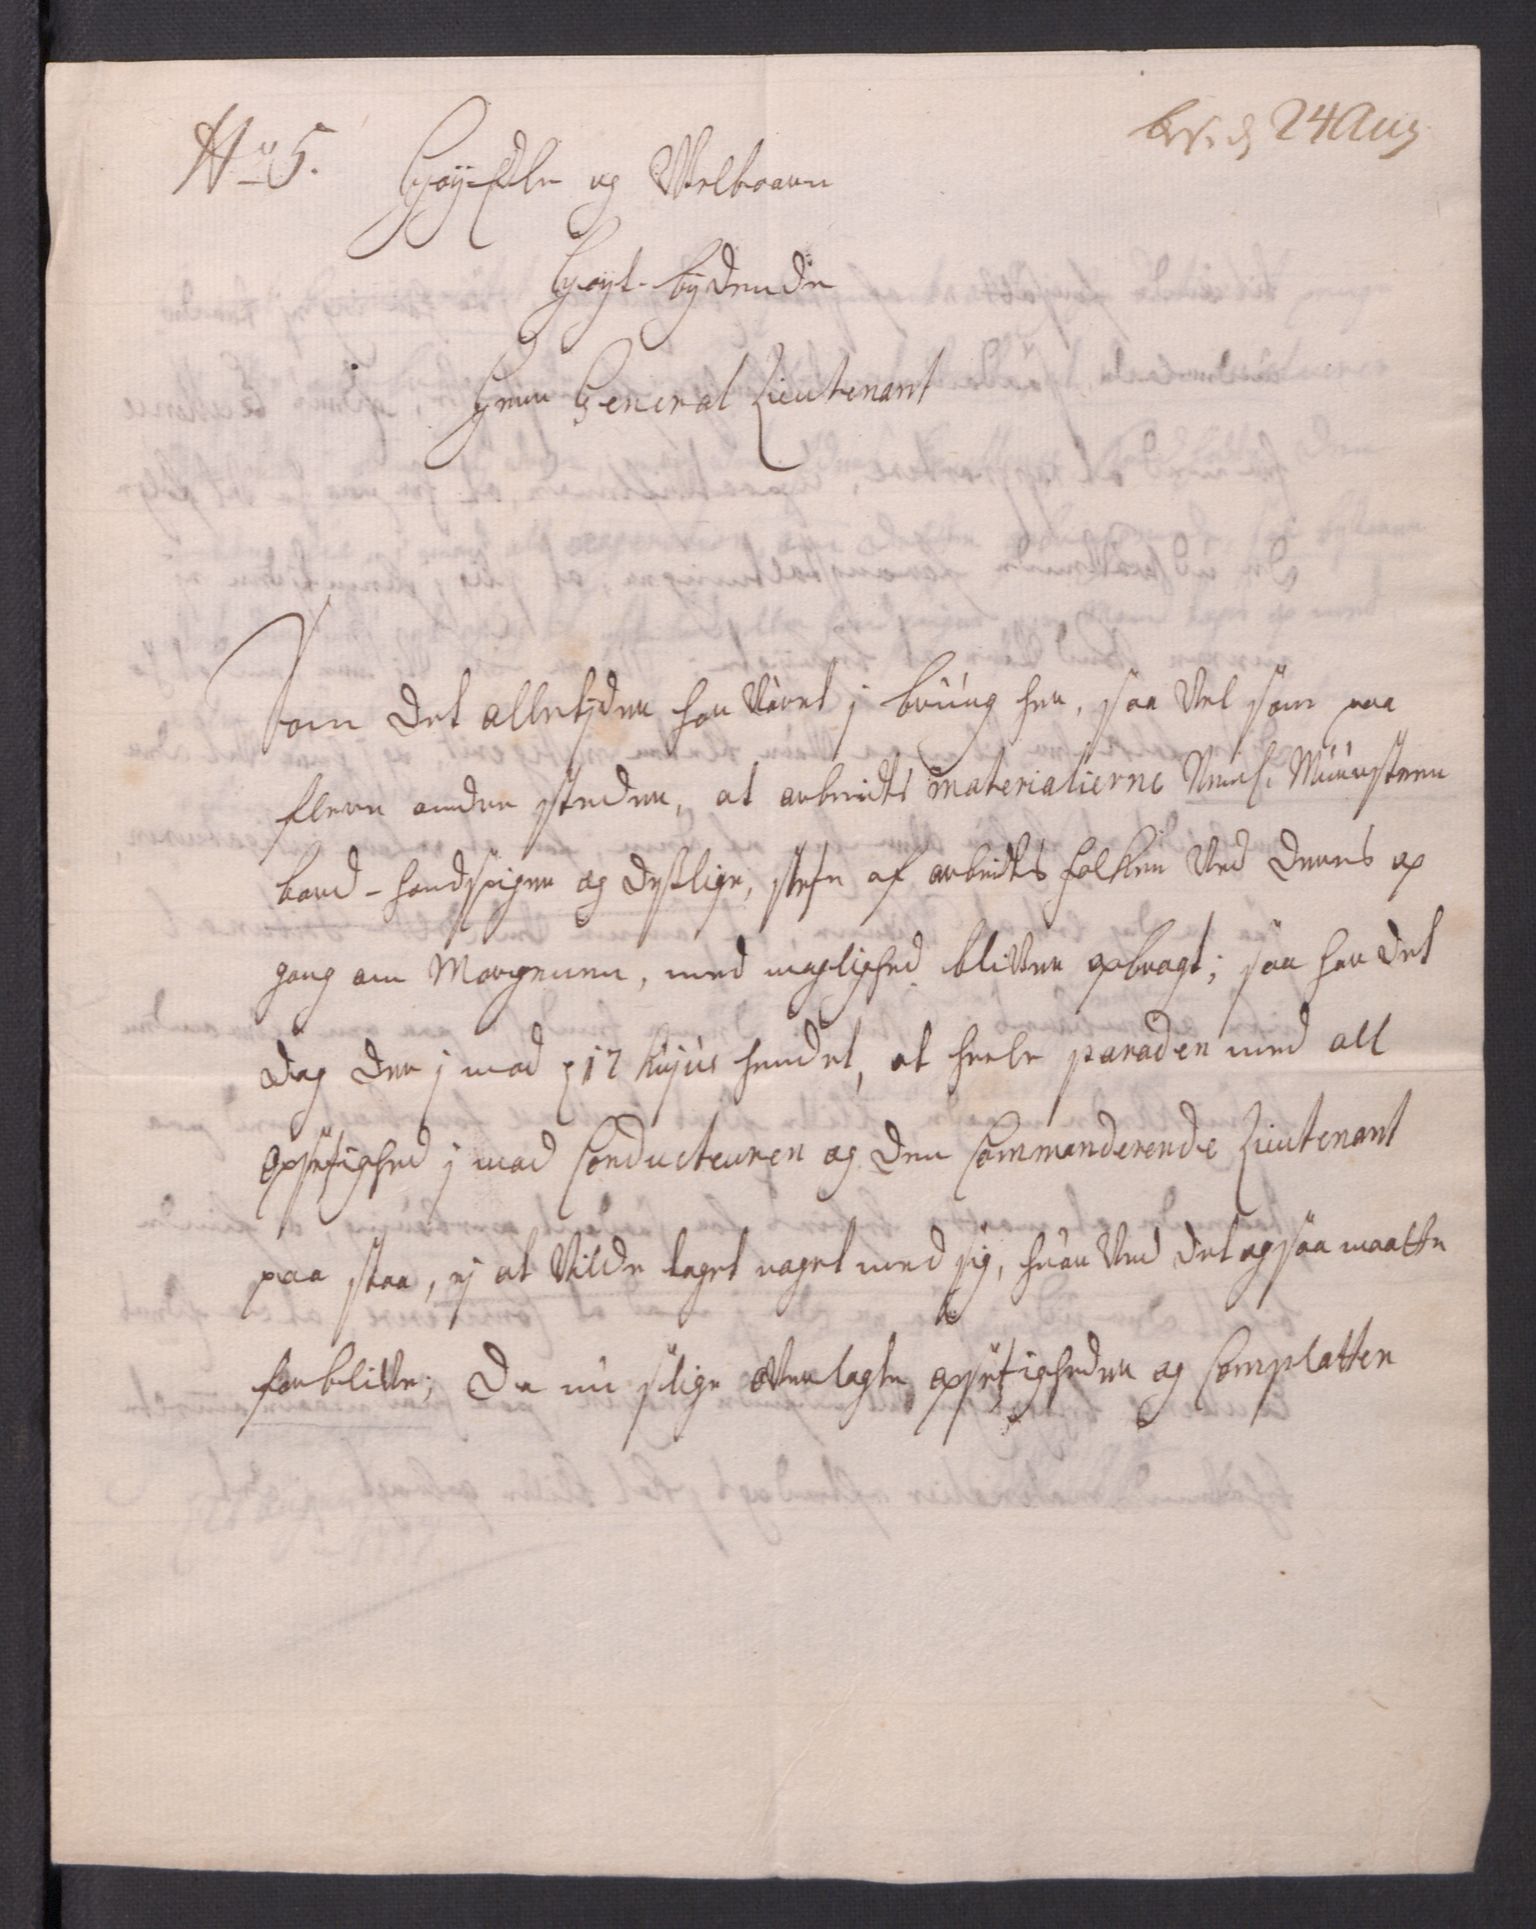 No 5.
24 Aug
Høy Edle og Welbaarn
Høyt-bydende
Herr General Lieutenant
Som det alletyder har Været j bruug her, saa Vel som paa
flere andre steder, at arbeids materialierne Neml. Muursteen
bord-handspiger og deslige, af arbeids folken Ved deres op
gang om Morgenen, med maglighed bliver opbragt; saa har det
dag der j mod d 17 hujus hendet, at heele paraden med all
opsetighed j mod Conducteuren og den Commanderende Lieutenant
paa staa, ej at Vilde taget noget med sig, huor Ved det ogsaa maatte
forblive; Da nu slige overlagte opsetigheder og Complotter